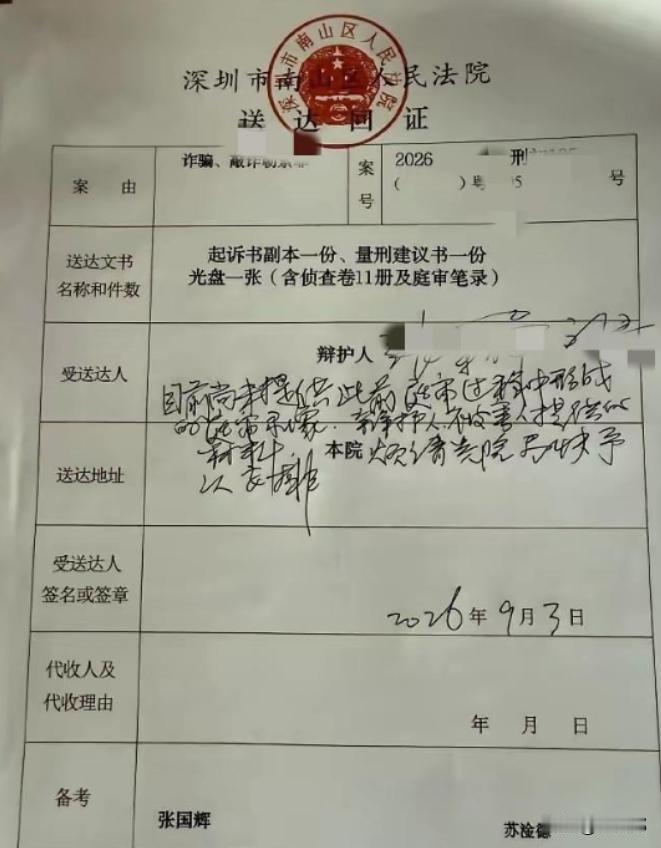 深圳市南山区人民法院
深圳市南山区人民法院
送达回证
案由
诈骗、敲诈勒索
案号
2026
刑
( )粤 05 号
送达文书名称和件数
起诉书副本一份、量刑建议书一份
光盘一张(含侦查卷11册及庭审笔录)
受送达人
辩护人
目前尚未提供此前庭审过程中形成
的庭审录像、辩护人、被害人提供的
材料.
送达地址
本院 烦请贵院尽快予
以安排
受送达人
签名或签章
2026年9月3日
代收人及
代收理由
年 月 日
备考
张国辉
苏淦德